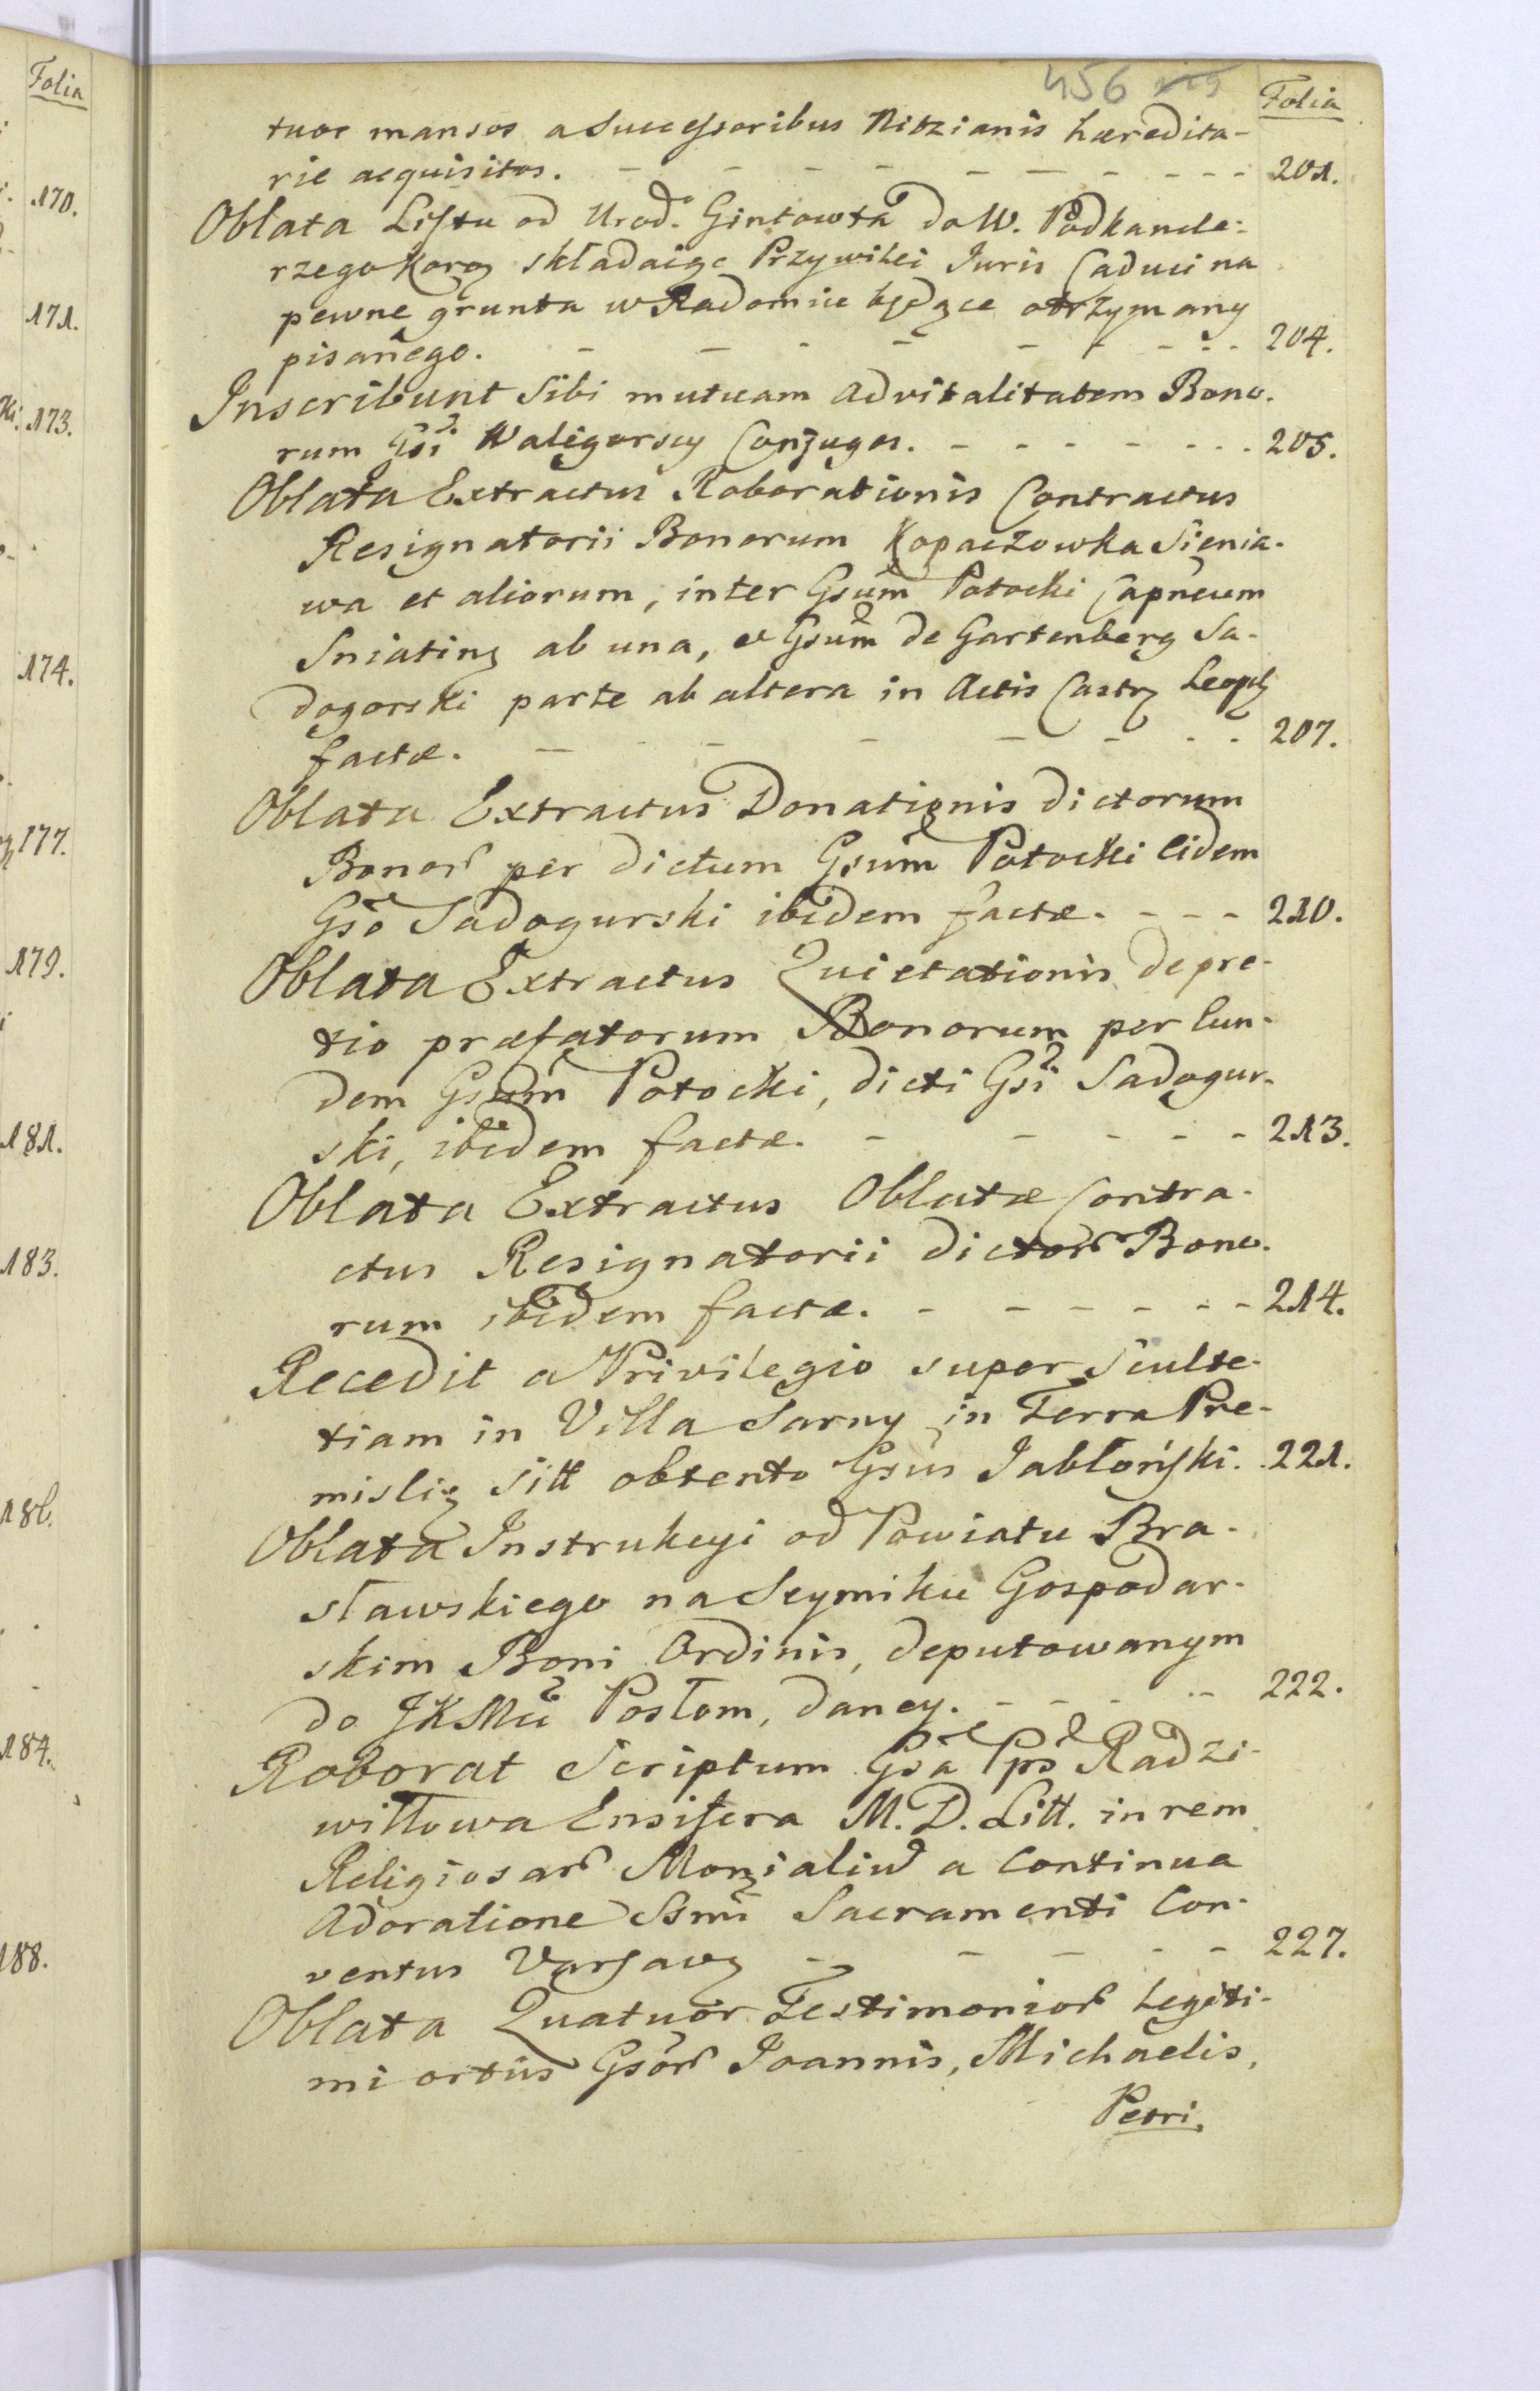 Folia
170.
171.
173.
174.
177.
179.
181.
183.
186.
184.
188.
456
Folia
tuor mansos a Successoribus Nitzianis hæredita-
rie acquisitos. - - - - - - - - - 201.
Oblata Listu od Urod. Gintowta do W. Podkancle-
rzego Korog składaiąc Przywilei Juris Caduci na
pewne grunta w Radomice będące otrzymany
pisanego. - - - - - - - - 204.
Inscribunt Sibi mutuam advitalitatem Bono-
rum Gsi Waligorscy Conjuges. - - - - - - 205.
Oblata Extractus Roborationis Contractus
Resignatorii Bonorum Kopaczowka Sienia-
wa et aliorum, inter Gsum Potocki Capneum
Sniating ab una, et Gsum de Gartenberg Sa-
dogorski parte ab altera in Actis Castr Leopl
factæ. - - - - - - - 207.
Oblata Extractus Donationis dictorum
Bonor per dictum Gsum Potocki eidem
Gso Sadogurski ibidem factæ. - - - 210.
Oblata Extractus Quietationis de pre-
tio præfatorum Bonorum per eun-
dem Gsum Potocki, dicti Gsi Sadogur-
ski, ibidem factæ. - - - - - - 213.
Oblata Extractus Oblatæ Contra-
ctus Resignatorii dictor Bono-
rum ibidem factæ. - - - - - - 214.
Recedit a Privilegio super Sculte-
tiam in Villa Sarny in Terra Pre-
mislien sitt obtento Gsus Jabłoński. 221.
Oblata Instrukcyi od Powiatu Bra-
sławskiego na Seymiku Gospodar-
skim Boni Ordinis, deputowanym
do JKMci Posłom, daney. - - - - 222.
Roborat Scriptum Gsa Pps Radzi-
wiłłowa Ensifera M. D. Litt. in rem
Religiosar Monialiu a Continua
Adoratione Ssmi Sacramenti Con-
ventus Varsav - - - - - 227.
Oblata Quatuor Testimonior Legiti-
mi ortus Gsor Joannis, Michaelis,
Petri,